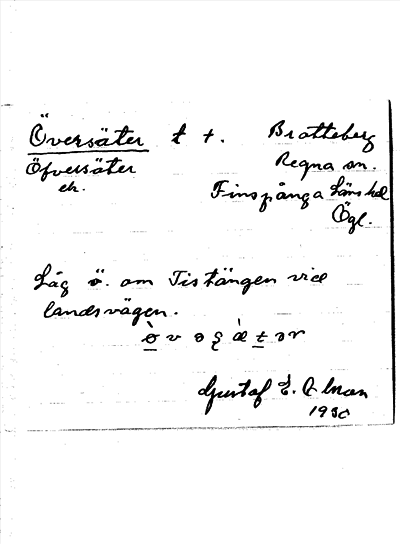 Översäter t +. Bratteberg
Öfversäter Regna sn.
ek. Finspånga Läns hd
Ögl.
Låg ö. om Tistängen vid
landsvägen.
Gustaf E.
1930